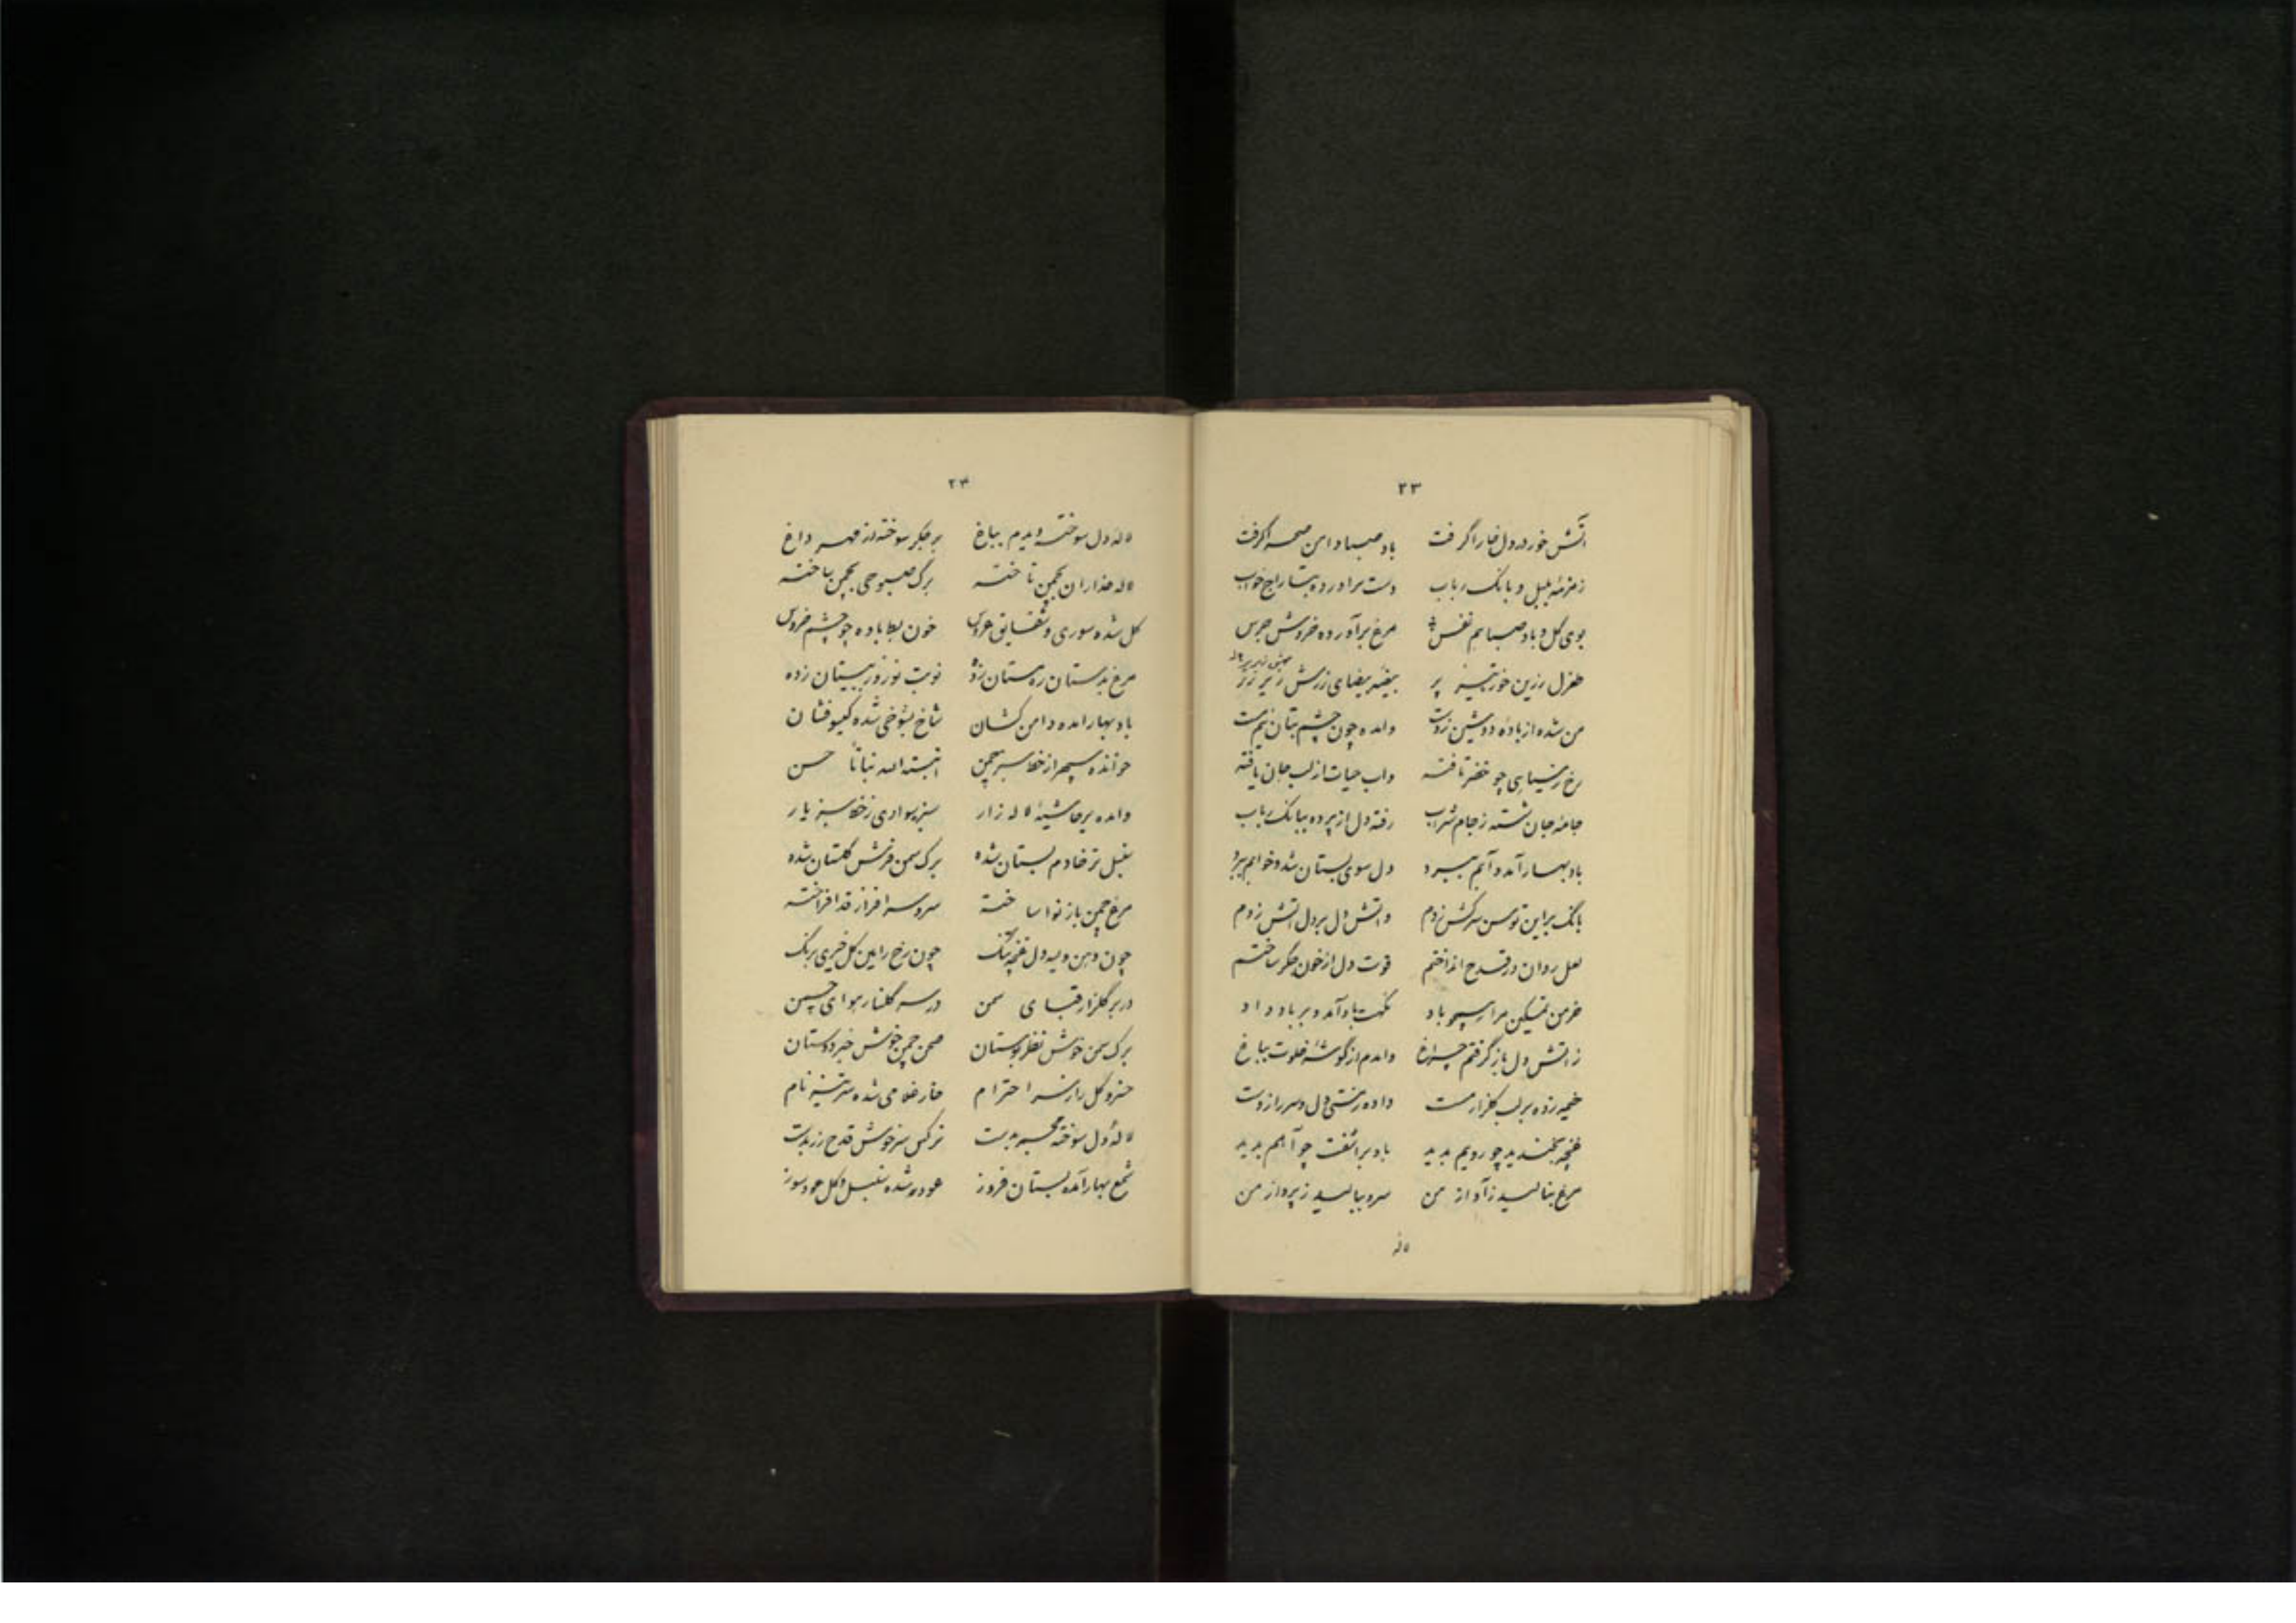 ۲۳
آتش خور در دل خارا گرفت باد صبا دامن صحرا گرفت
زمزمهٔ بلبل و بانک رباب دست برآورده بتاراج خواب
بوی گل و باد صبا هم نفس مرغ برآورده خروش جرس
طغرل رزین خور تیز پر بیضه بیضای زرش زیر پر
من شده از بادهٔ دوشین ز دست وامده چون چشم بتان نیم مست
رخ ز سیاهی چو خضر تافته واب حیات از لب جان یافته
جامهٔ جان شسته ز جام شراب رفته دل از پرده ببانک رباب
باد بهار آمد و آبم ببرد دل سوی بستان شد و خوابم ببرد
بانک براین توسن سرکش زدم واتش دل بر دل اتش زدم
لعل روان در قدح انداختم قوت دل از خون جگر ساختم
خرمن تمکین مرا سپو باد نکهت باد آمد و بر باد داد
زاتش دل باز گرفتم چراغ وامدم از گوشهٔ خلوت بباغ
خیمه زده بر لب گلزار مست داده ز مستی دل و سر را ز دست
غنچه بخندید چو رویم بدید باد برآشفت چو آهم بدید
مرغ بنالید ز آواز من سرو ببالید ز پرواز من
لاله
۲۴
لاله دل سوخته دیدم بباغ بر جگر سوخته از مهر داغ
لاله عذاران بچمن تاخته برگ صبوحی بچمن ساخته
گل شده سوری و شقایق عروس خون بط باده چو چشم خروس
مرغ بدستان ره مستان زده نوبت نوروز ببستان زده
باد بهار امده دامن کشان شاخ بشوخی شده گیسو فشان
خوانده سپهر از خط سبز چمن انبته الله نباتا حسن
وامده بر حاشیهٔ لاله زار سبز سوادی ز خط سبز یار
سنبل تر خادم بستان شده برک سمن فرش گلستان شده
مرغ چمن باز نوا ساخته سرو سرافراز قد افراخته
چون دهن ویسه دل غنچه تنگ چون رخ رامین گل خیری برنگ
در بر گلزار قبای سمن در سر گلنار هوای چمن
برک سمن خوش نظر بوستان صحن چمن خوش خبر دوستان
خسرو گل را ز سر احترام خار غلامی شده سر تیز نام
لالهٔ دل سوخته مجمر بدست نرکس سرخوش قدح زر بدست
شمع بهار آمده بستان فروز عود شده سنبل و گل عود سوز